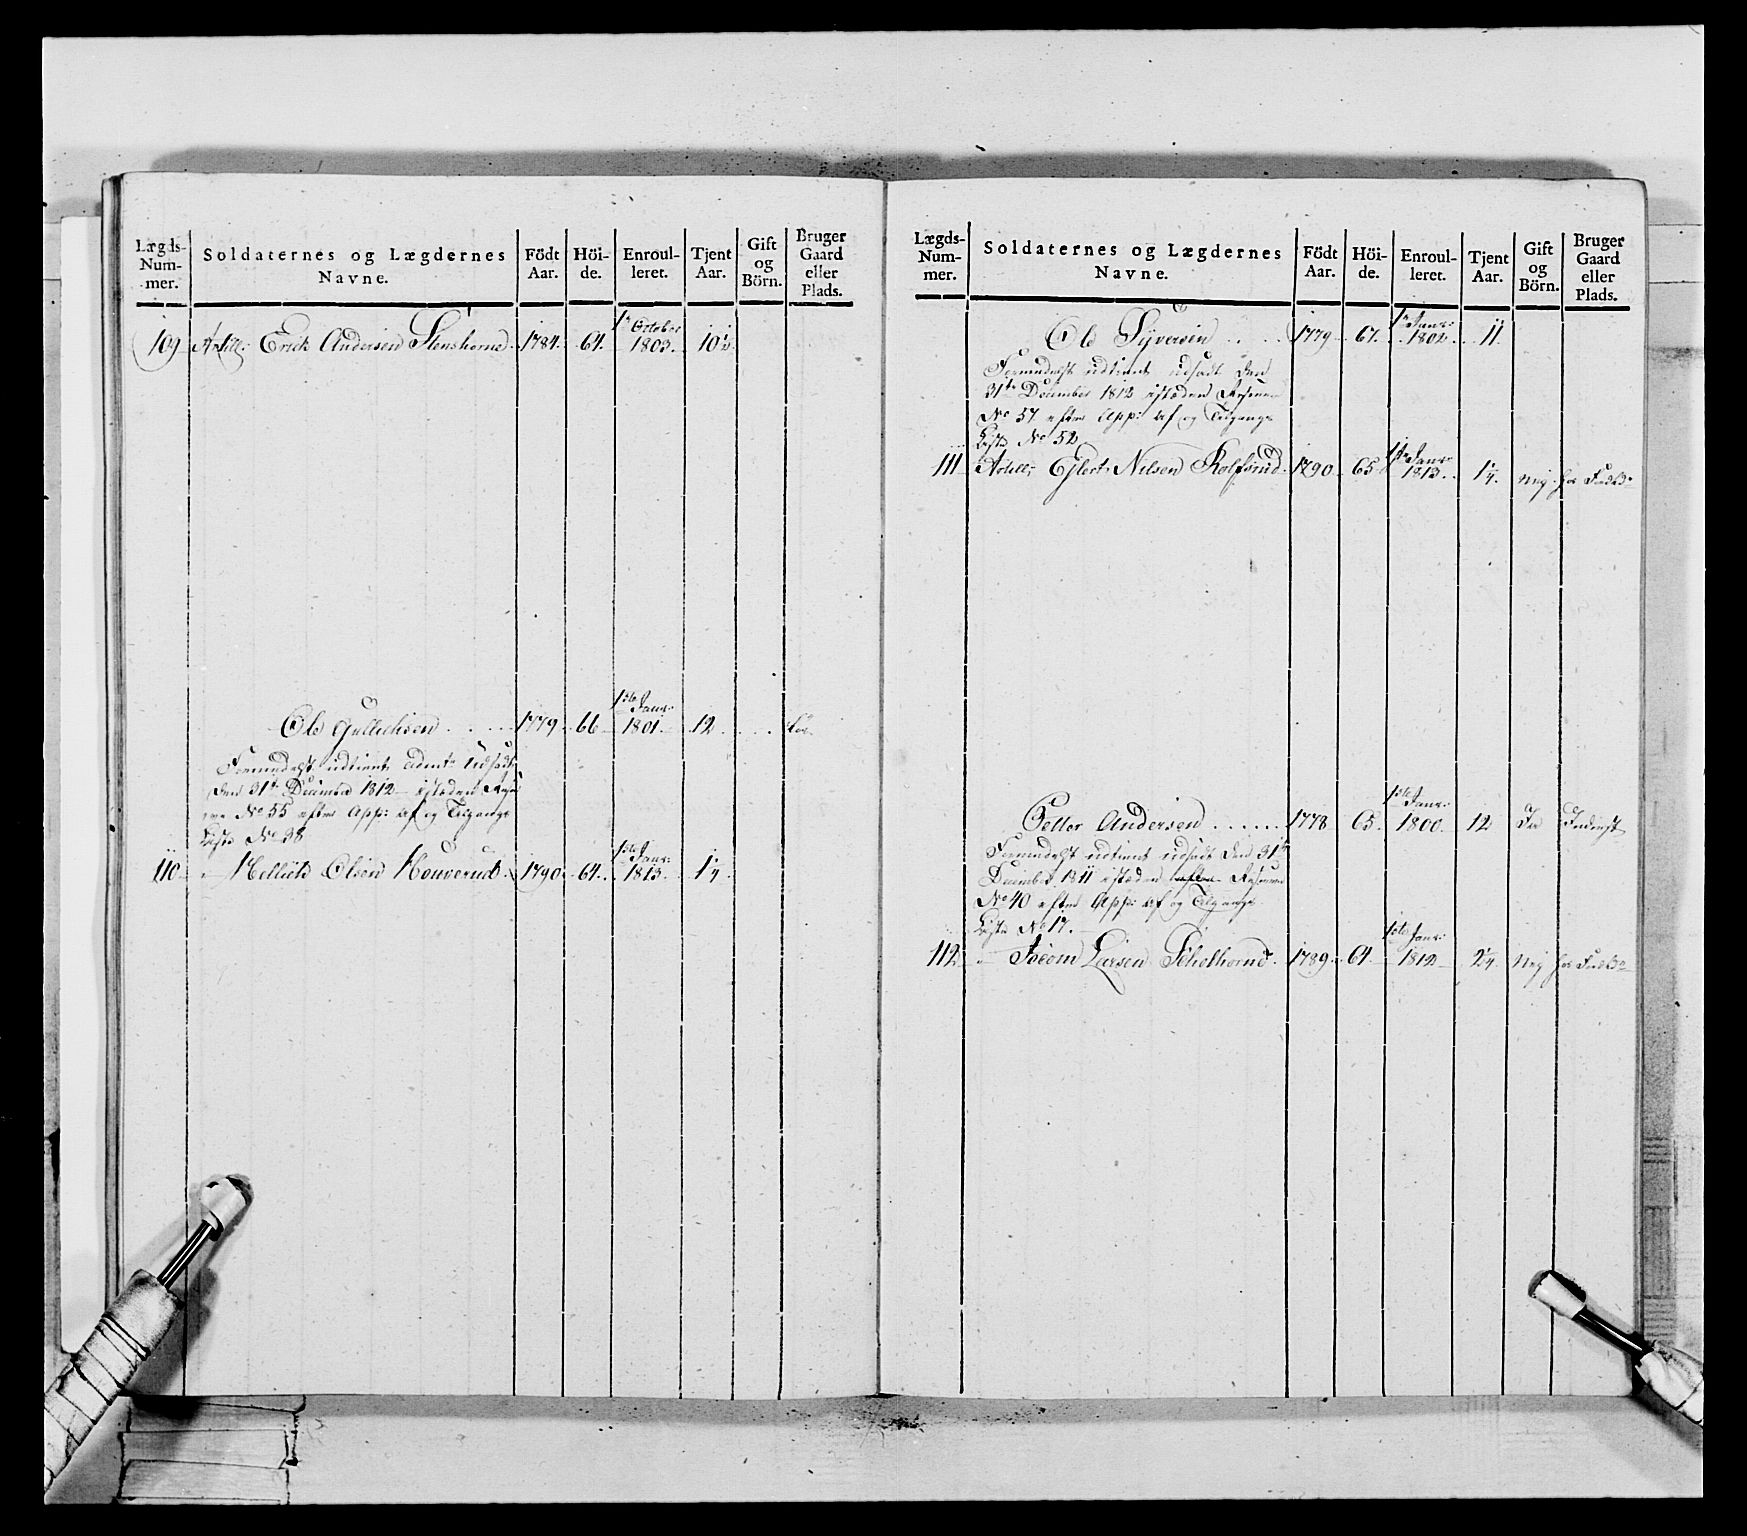 Lægds-Num-mer. Soldaternes og Lægdernes Navne. Födt Aar. Höi-de. Enroul-leret. Tjent Aar. Gift og Börn. Bruger Gaard eller Plads.
109 Artill: Erick Andersen Stenshorne 1784. 64. 1te October 1803. 10½
Ole Gullichsen . . . . 1779. 66 1ste Janr: 1801. 12 . .
Formedelst udtient Udsadt
den 31te December 1812 istæden Rese
rve No 55 efter App: Af og Tilgangs
Liste No 38
110 " Mellich Olsen Houverud. 1790. 64. 1ste Janr: 1813. 1¼
Lægds-Num-mer. Soldaternes og Lægdernes Navne. Födt Aar. Höi-de. Enroul-leret. Tjent Aar. Gift og Börn. Bruger Gaard eller Plads.
Ole Syversen . . . 1779 67. 1te Janr: 1802 11
Formedelst udtient udsadt den
31te December 1812 istæden Reserve
No 57 efter App: Af og Tilgangs
Liste No 52
111 Artill: Eylert Nilsen Rolfsrud. 1790. 65 1ste Janr: 1813. 1¼ Ney hos
Peller Andersen . . . . . . 1778 65. 1ste Janr: 1800. 12 Ja Inderst
Formedelst udtient udsadt den 31te
December 1811 istæden Reserve
No 40 efter App: Af og Tilgangs
Liste No 17.
112 " Joeom Larsen Schelhorne. 1789. 64. 1ste Janr: 1812 2¼ Ney hos